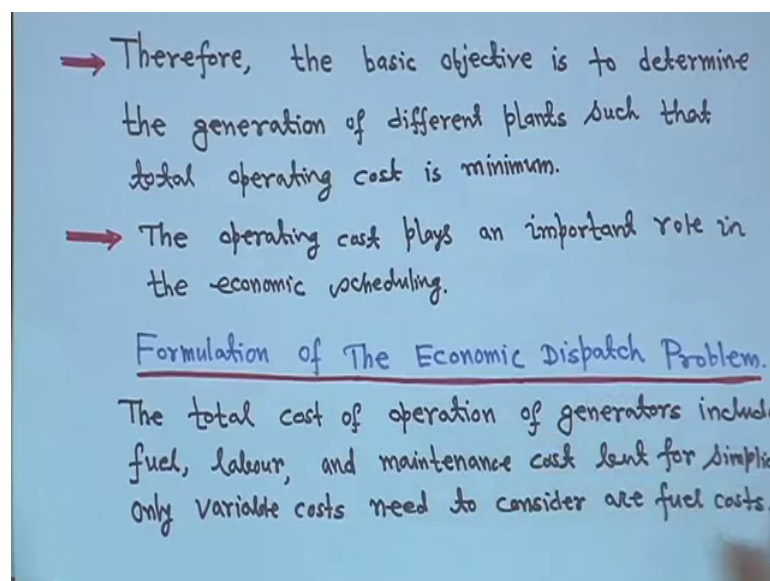 Therefore, the basic objective is to determine
the generation of different plants such that
total operating cost is minimum.
The operating cost plays an important role in
the economic scheduling.
Formulation of The Economic Dispatch Problem.
The total cost of operation of generators includ
fuel, labour, and maintenance cost but for simplic
only variable costs need to consider are fuel costs.